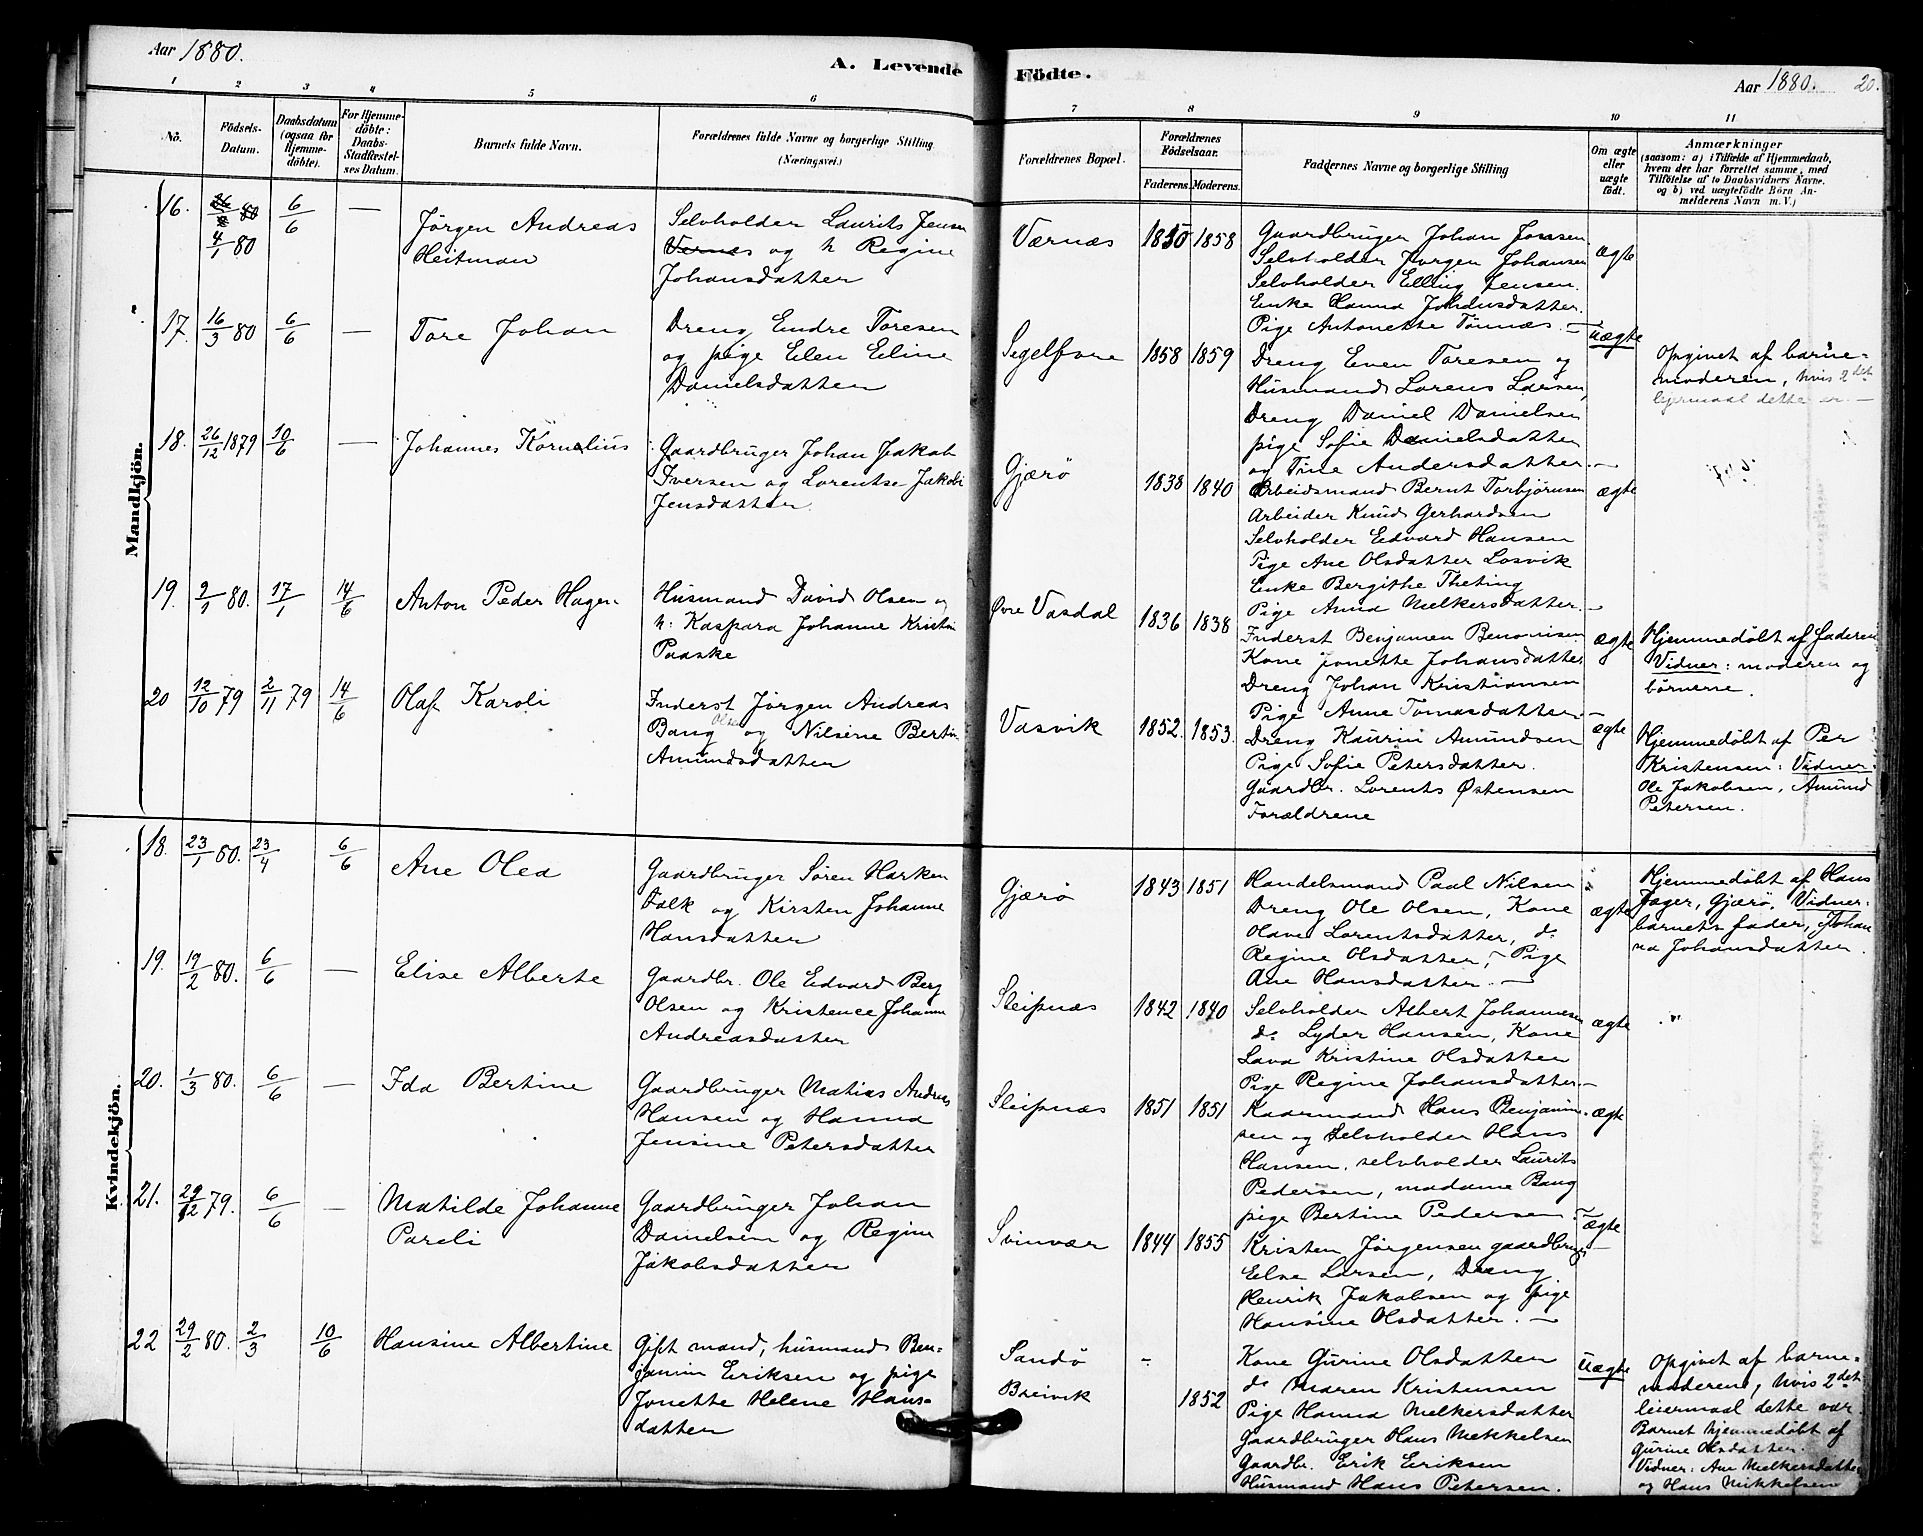 Aar 1880.
A. Levende
Födte.
Aar 1880. 20.
1 2 3 4 5 6
7 8 9 10 11
No.
Födsels-Datum.
Daabsdatum (ogsaa for Hjemme-döbte).
For Hjemme-döbte: Daabs-Stadfæstel-ses Datum.
Barnets fulde Navn.
Forældrenes fulde Navne og borgerlige Stilling
(Næringsvei.)
Forældrenes Bopæl.
Forældrenes Födselsaar.
Faderens. Moderens.
Faddernes Navne og borgerlige Stilling
Om ægte eller uægte födt.
Anmærkninger
(saasom: a) i Tilfælde af Hjemmedaab,
hvem der har forrettet samme, med
Tilföielse af to Daabsvidners Navne.
og b) ved uægtefödte Börn An-
melderens Navn m. V.)
Mandkjön.
16. 4/1 80 6/6 — Jørgen Andreas
Heitman
Selvholder Laurits Jensen
Værnes og h Regine
Johansdatter
Værnæs 1850 1858
Gaardbruger Johan Jonsen
Selvholder Jørgen Johansen
Selvholder Elling Jensen.
Enke Hanna Johansdatter.
Pige Antonette Tönnæs. —
ægte
17. 16/3 80 6/6 — Tore Johan
Dreng Endre Toresen
og pige Elen Eline
Danielsdatter
Segelfore 1858 1859
Dreng Even Toresen og
Husmand Lorens Larsen,
Dreng Daniel Danielsen
pige Sofie Danielsdatter
og Trine Andersdatter. —
uægte
Opgivet af barne=
moderen, hvis 2det
lejermaal dette er. —
18. 26/12 1879 10/6 — Johannes Kornelius
Gaardbruger Johan Jakob
Iversen og Lorentse Jakobi
Jensdatter.
Gjærö 1838 1840
Arbeidsmand Bernt Torbjörnsen
Arbeider Knud Gerhardsen
Selvholder Edvard Hansen
Pige Ane Olsdatter Losvik
Enke Bergithe Theting
Pige Anna Melkersdatter. —
ægte
19. 2/1 80. 17/1 14/6 Anton Peder Hagen
Husmand David Olsen og
h: Kaspara Johanne Kristin
Paaske
Øvre Vasdal 1836 1838
Inderst Benjamen Benonisen
Kone Jonette Johansdatter
Dreng Johan Kristiansen
Pige Anne Tomasdatter. —
ægte
Hjemmedøbt af faderen
Vidner: moderen og
börnene.
20 12/10 79 2/11 79 14/6 Olaf Karoli
Inderst Jörgen Andreas
Bang Olsen og Nilsine Bertin
Amundsdatter
Vasvik 1852. 1853.
Dreng Kaurin Amundsen
Pige Sofie Petersdatter.
Gaardbr. Lorents Østensen
Forældrene
ægte
Hjemmedøbt af Per
Kristensen: Vidner:
Ole Jakobsen, Amund
Petersen.
Kvindekjön.
18. 23/1 80. 23/4 6/6 Ane Olea
Gaardbruger Sören Harken
Falk og Kirsten Johanne
Hansdatter
Gjærö 1843 1851
Handelsmand Paal Nilsen
Dreng Ole Olsen, Kone
Olava Lorentsdatter, do
Regine Olsdatter, Pige
Ane Hansdatter. —
ægte
Hjemmedøbt af Hans
Jager, Gjærö. Vidner:
barnets fader, Johan
na Johansdatter.
19. 19/2 80. 6/6 — Elise Alberte
Gaardbr. Ole Edvard Berg
Olsen og Kristence Johanne
Andreasdatter
Sleipnæs 1842 1840
Selvholder Albert Johannesen
do Lyder Hansen, Kone
Lava Kristine Olsdatter
Pige Regine Johansdatter. —
ægte
20. 1/3 80. 6/6 — Ida Bertine
Gaardbruger Matias Andreas
Hansen og Hanna
Jensine Petersdatter
Sleipnæs 1851 1851
Kaarmand Hans Benjamin-
sen og Selvholder Hans
Hansen, selvholder Laurits
Pedersen, madame Bang
pige Bertine Pedersen.
ægte
21. 29/12 79. 6/6 — Matilde Johanne
Pareli
Gaardbruger Johan
Danielsen og Regine
Jakobsdatter
Svinvær 1844 1855
Kristen Jørgensen gaardbruger
Else Larsen, Dreng
Henrik Jakobsen og pige
Hansine Olsdatter. —
ægte
22 29/2 80. 2/3 10/6 Hansine Albertine
Gift mand, husmand Ben=
jamin Eriksen og pige
Jonette Helene Hans=
datter
Sandö
Breivik
1852
Kone Gurine Olsdatter
do Maren Kristensen
Pige Hanna Melkersdatter
Gaardbruger Hans Mekkelsen
Gaardbr. Erik Eriksen
Husmand Hans Petersen.
uægte
Opgivet af barne=
moderen, hvis 2det
leiermaal dette var
Barnet hjemmedøbt af
Gurine Olsdatter.
Vidner: Ane Melkersdatter
og Hans Mikkelsen